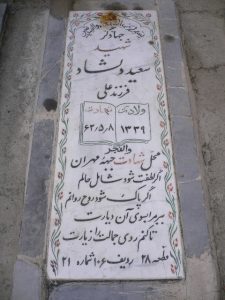 جهادگر
شهید
سعید دلشاد
فرزند علی
ولادت شهادت
۱۳۳۹ ۶۲/۵/۸
والفجر
محل شهادت جبهه مهران
اگر لطفت شود شامل حالم
اگر پاک شود روح روانم
ببر مرا بسوی آن دیارت
تا کنم روی جمالت را زیارت
قطعه ۲۸ ردیف ۱۰۶ شماره ۲۱